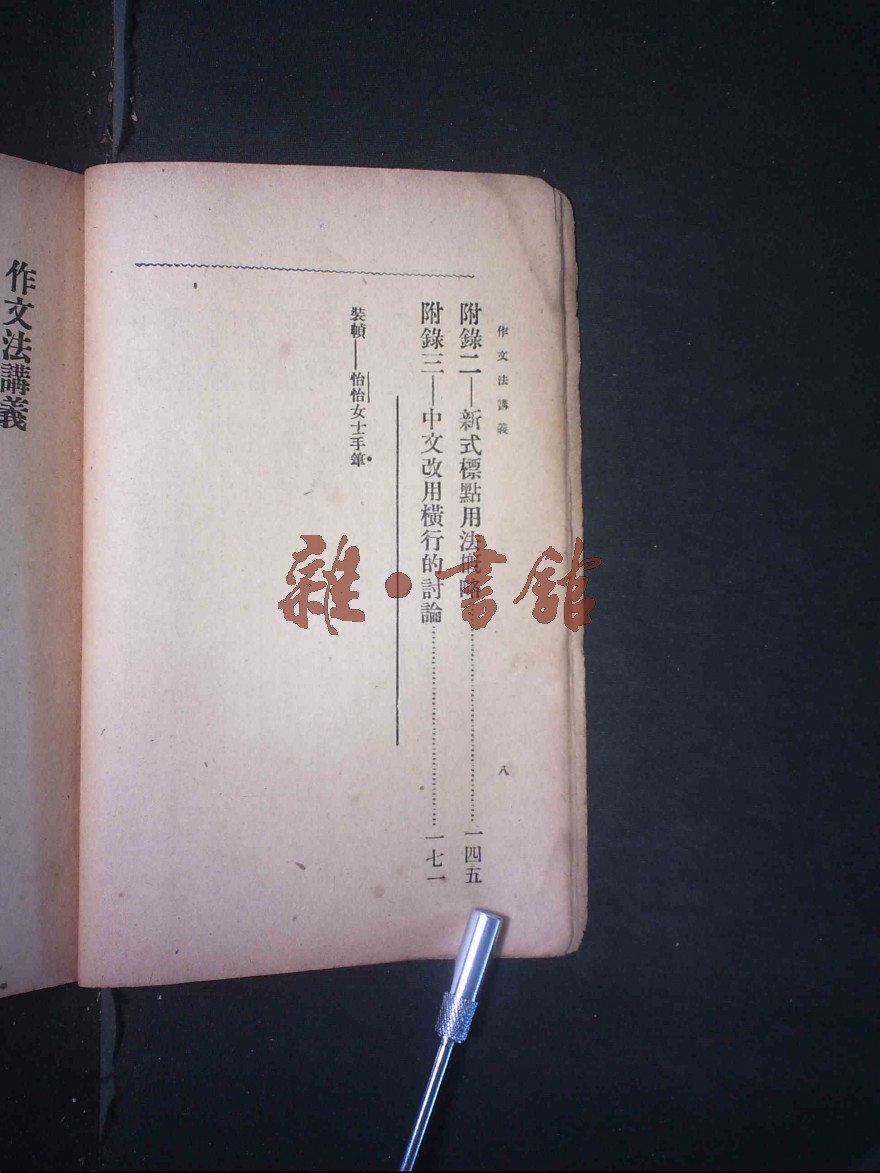 作文法講義
八
附錄二—新式標點用法概略……一四五
附錄三—中文改用橫行的討論……一七一
裝幀——怡怡女士手筆●
作文法講義
雜·書館